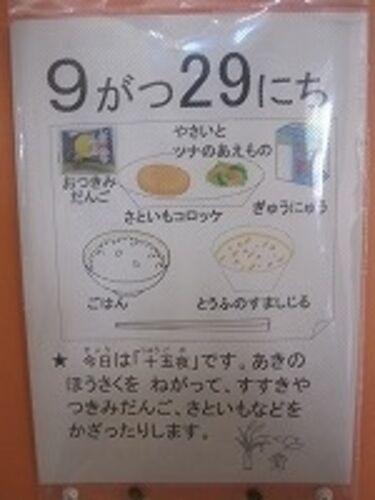 9がつ29にち
やさいと
ツナのあえもの
おつきみ
だんご
さといもコロッケ
ぎゅうにゅう
ごはん
とうふのすましじる
★ 今日は「十五夜」です。あきの
ほうさくを ねがって、すすきや
つきみだんご、さといもなどを
かざったりします。